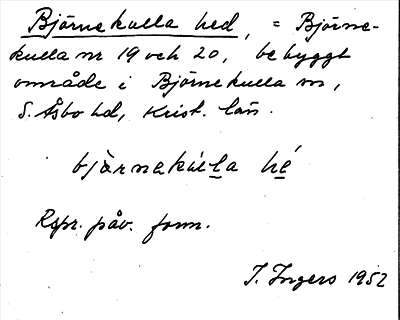 Björnekulla hed, = Björne-
kulla nr 19 och 20, bebyggt
område i Björnekulla sn,
S. Åsbo hd, Krist. län.
bjä̀rnekúl̲l̲a hé̲
Rspr. påv. form.
I. Ingers 1952